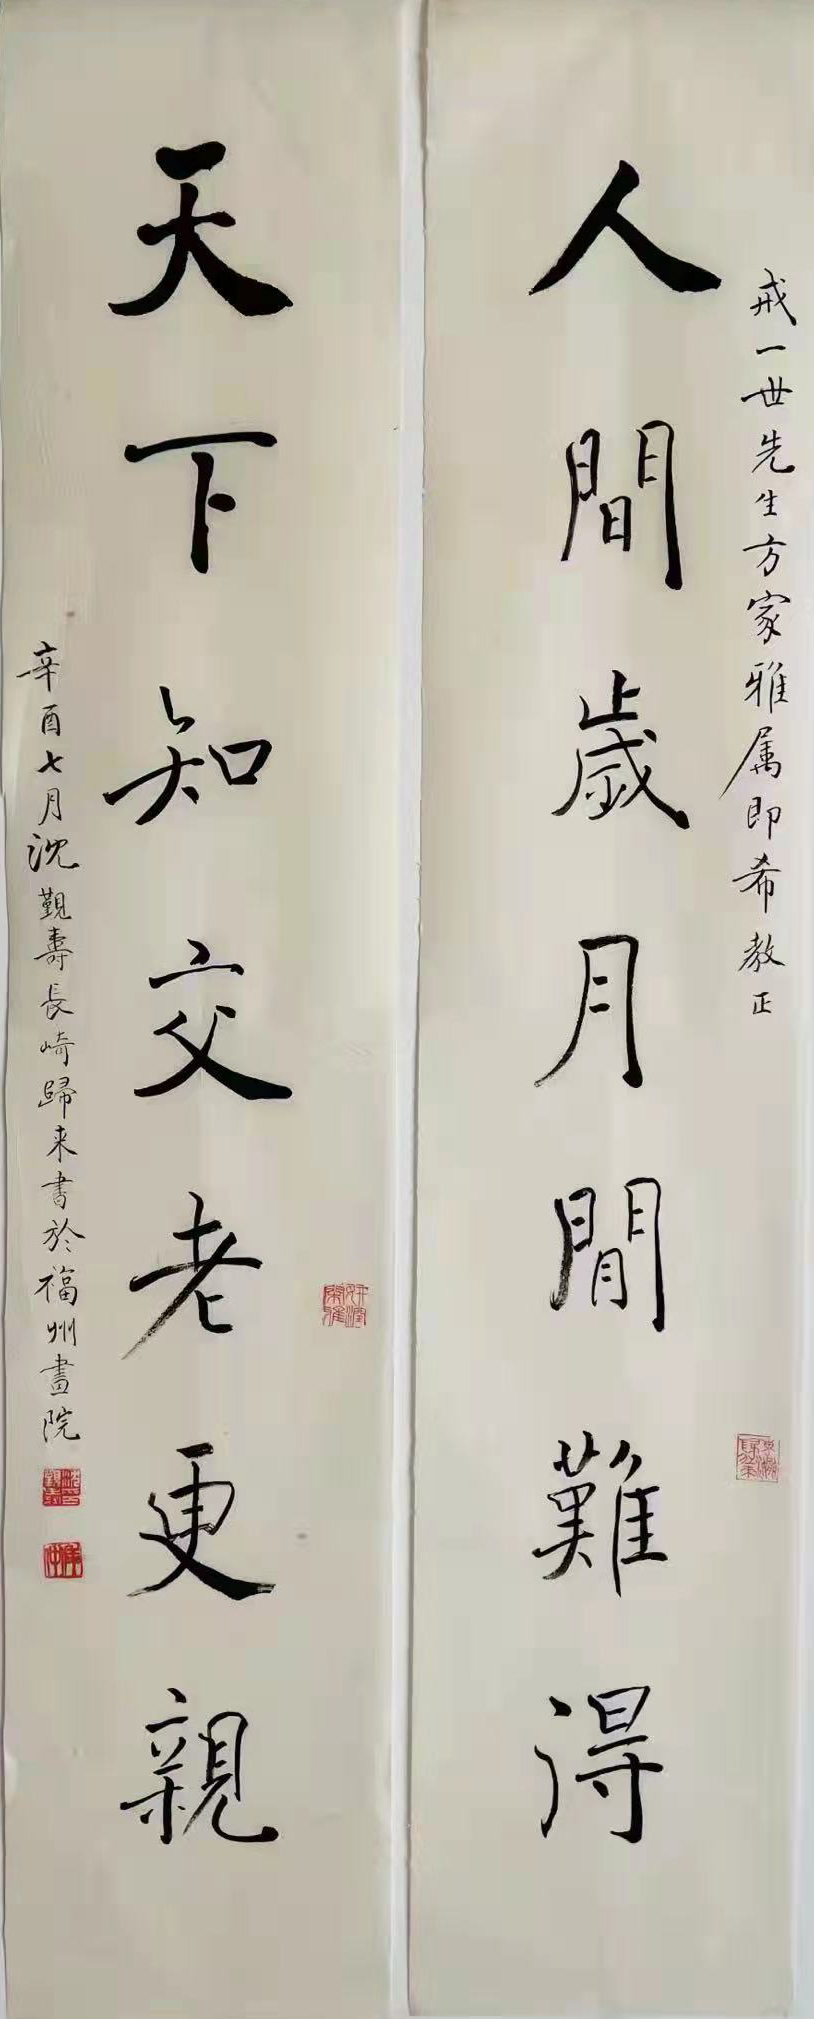 戒一世先生方家雅属即希教正
人間歲月閒難得
天下知交老更親
辛酉七月沈覲壽長崎歸来書於福州畫院